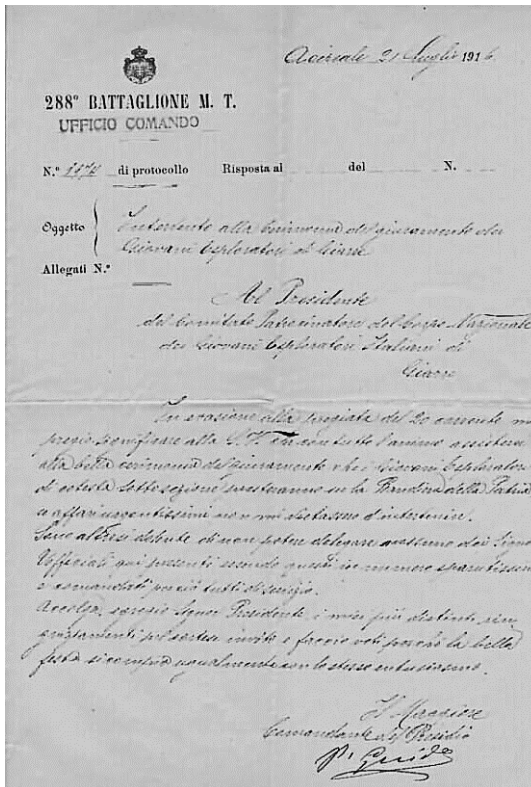 Acireale 21 Luglio 1916
288º BATTAGLIONE M. T.
UFFICIO COMANDO
N.º di protocollo Risposta al del N.
Oggetto Intervento alla cerimonia del giuramento dei
Giovani Esploratori di Giarre
Allegati N.º
Al Presidente
del Comitato Patrocinatore del Corpo Nazionale
dei Giovani Esploratori Italiani di
Giarre
In evasione alla pregiata del 20 corrente mi
pregio significare alla S. V. con tutto l'animo assisterei
alla bella cerimonia del giuramento che i Giovani Esploratori
di cotesta sotto sezione presteranno su la Bandiera della Patria
se affari urgentissimi non mi vietassero d'intervenire.
Sono altresì dolente di non potere delegare nessuno dei Signori
Ufficiali qui presenti essendo questi in numero
e comandati perciò tutti di servizio.
Accolga, egregio Signor Presidente, i miei più distinti rin
graziamenti pel cortese invito e faccio voti perchè la bella
festa si compia ugualmente con lo stesso entusiasmo.
Il Maggiore
Comandante del Presidio
Guido